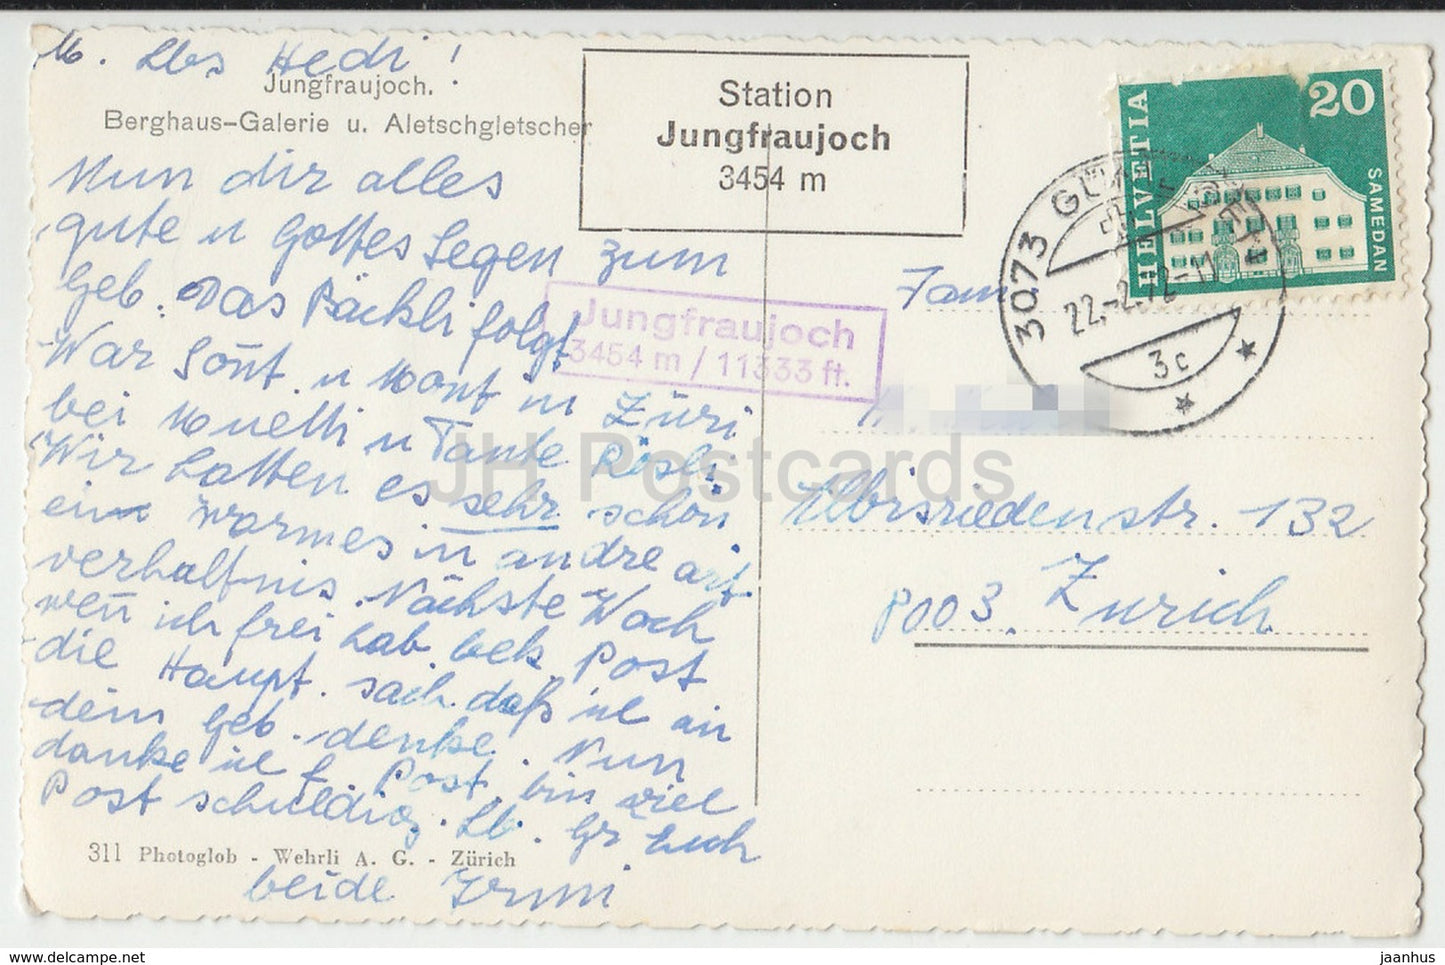 M. Lbs Hedi!
Jungfraujoch.
Berghaus-Galerie u. Aletschgletscher
Nun dir alles
gute u Gottes Segen zum
Geb. Das Päckli folgt
War Sont. u Mont in Züri
bei Muetti u Tante Rösli.
Wir hatten es sehr schön
ein warmes in andre art
verhaltnis. Nächste Woch
wen ich frei hab. bek. Post
die Haupt. sach. daß ich an
dein Geb. denke. Nun
danke ich f. Post, bin viel
Post schuldig. Lb. Gr Euch
beide Irmi
311 Photoglob - Wehrli A. G. - Zürich
Station
Jungfraujoch
3454 m
Jungfraujoch
3454 m / 11333 ft.
HELVETIA
20
SAMEDAN
3073
22.-2.72-11
3c
Fam
Albisriedenstr. 132
8003. Zürich
JH Postcards
jaanhus
www.delcampe.net